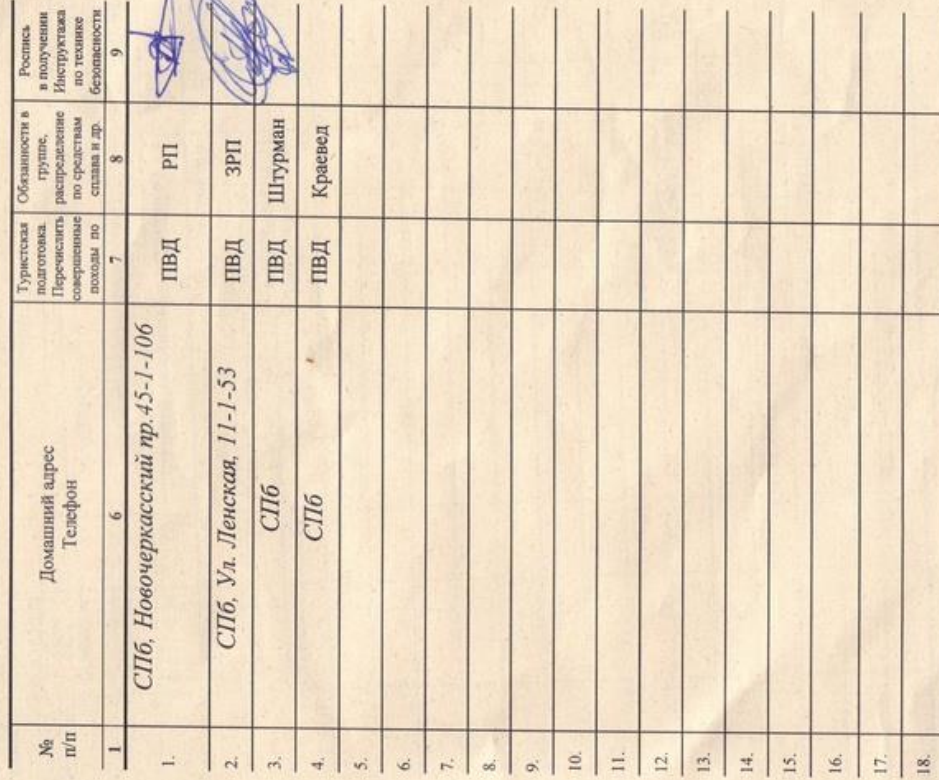 №
п/п
Домашний адрес
Телефон
Туристская
подготовка.
Перечислить
совершенные
походы по
Обязанности в
группе,
распределение
по средствам
сплава и др.
Роспись
в получении
Инструктажа
по технике
безопасности
1 6 7 8 9
1. СПб, Новочеркасский пр.45-1-106 ПВД РП
2. СПб, Ул. Ленская, 11-1-53 ПВД ЗРП
3. СПб ПВД Штурман
4. СПб ПВД Краевед
5.
6.
7.
8.
9.
10.
11.
12.
13.
14.
15.
16.
17.
18.